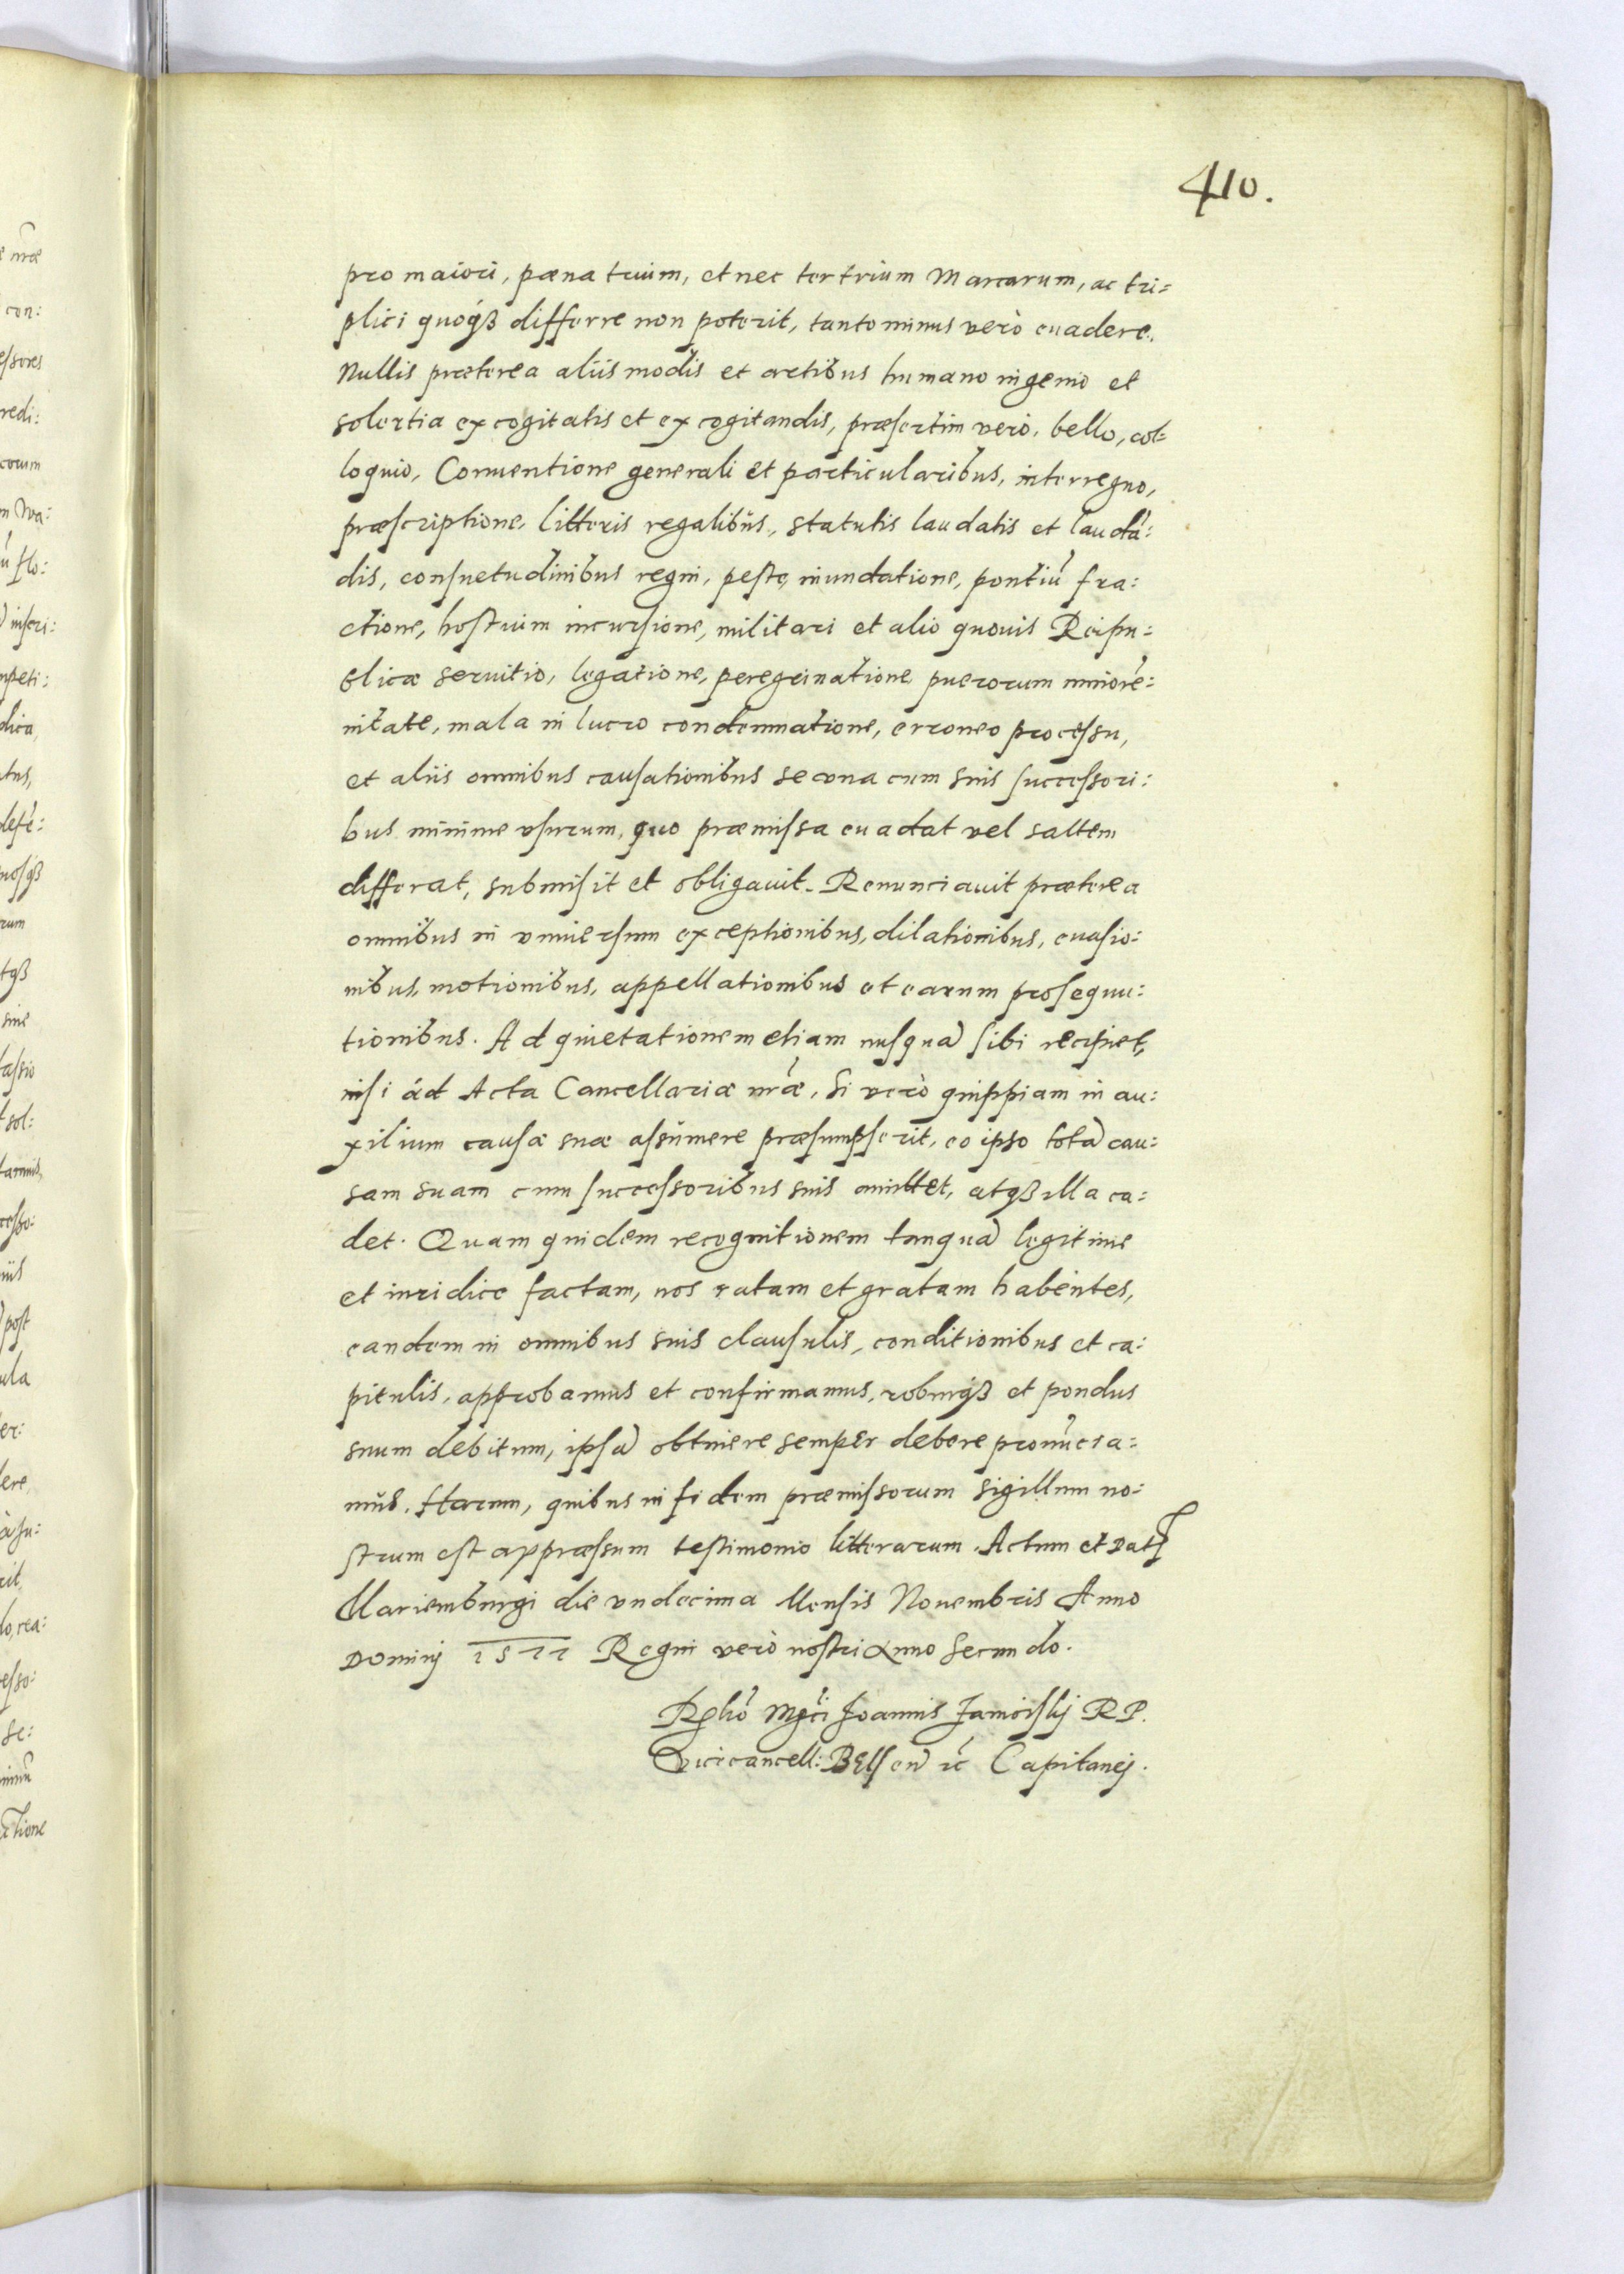 410.
pro maiori, pæna trium, et nec ter trium Marcarum, ac tri=
plici quoq3 differre non poterit, tanto minus verò euadere.
Nullis præterea aliis modis et artibus humano ingenio et
solertia excogitatis et excogitandis, præsertim verò, bello, col=
loquio, Conuentione generali et particularibus, interregno,
præscriptione, litteris regalibus, statutis laudatis et laudā:
dis, consuetudinibus regni, peste, inundatione, pontiū fra:
ctione, hostium incursione, militari et alio quouis Reipu=
blicæ seruitio, legatione, peregrinatione puerorum minorē:
nitate, mala in lucro condemnatione, erroneo processu,
et aliis omnibus causationibus se vna cum suis successori:
bus minime vsurum, quo præmissa euadat vel saltem
differat, submisit et obligauit. Renunciauit præterea
omnibus in vniuersum exceptionibus, dilationibus, euasio:
nibus, motionibus, appellationibus et earum prosequu:
tionibus. Ad quietationem etiam nusquā sibi recipiet,
nisi ad Acta Cancellariæ nr̄æ, Si verò quippiam in au:
xilium causæ suæ assumere præsumpserit, eo ipso totā cau:
sam suam cum successoribus suis amittet, atq3 illa ca:
det. Quam quidem recognitionem tanquā legitime
et iuridice factam, nos ratam et gratam habentes,
eandem in omnibus suis clausulis, conditionibus et ca:
pitulis, approbamus et confirmamus, roburq3 et pondus
suum debitum, ipsā obtinere semper debere pronūcia:
mus. Harum, quibus in fidem præmissorum sigillum no:
strum est appræssum testimonio litterarum. Actum et Dat
Mariemburgi die vndecima Mensis Nouembris Anno
Dominj 1577 Regni verò nostri Anno Secundo.
Rel̄io Mgc̄i Joannis Zamoiskj R P.
Vicecancell: Belsen̄ ec̄ Capitanej.